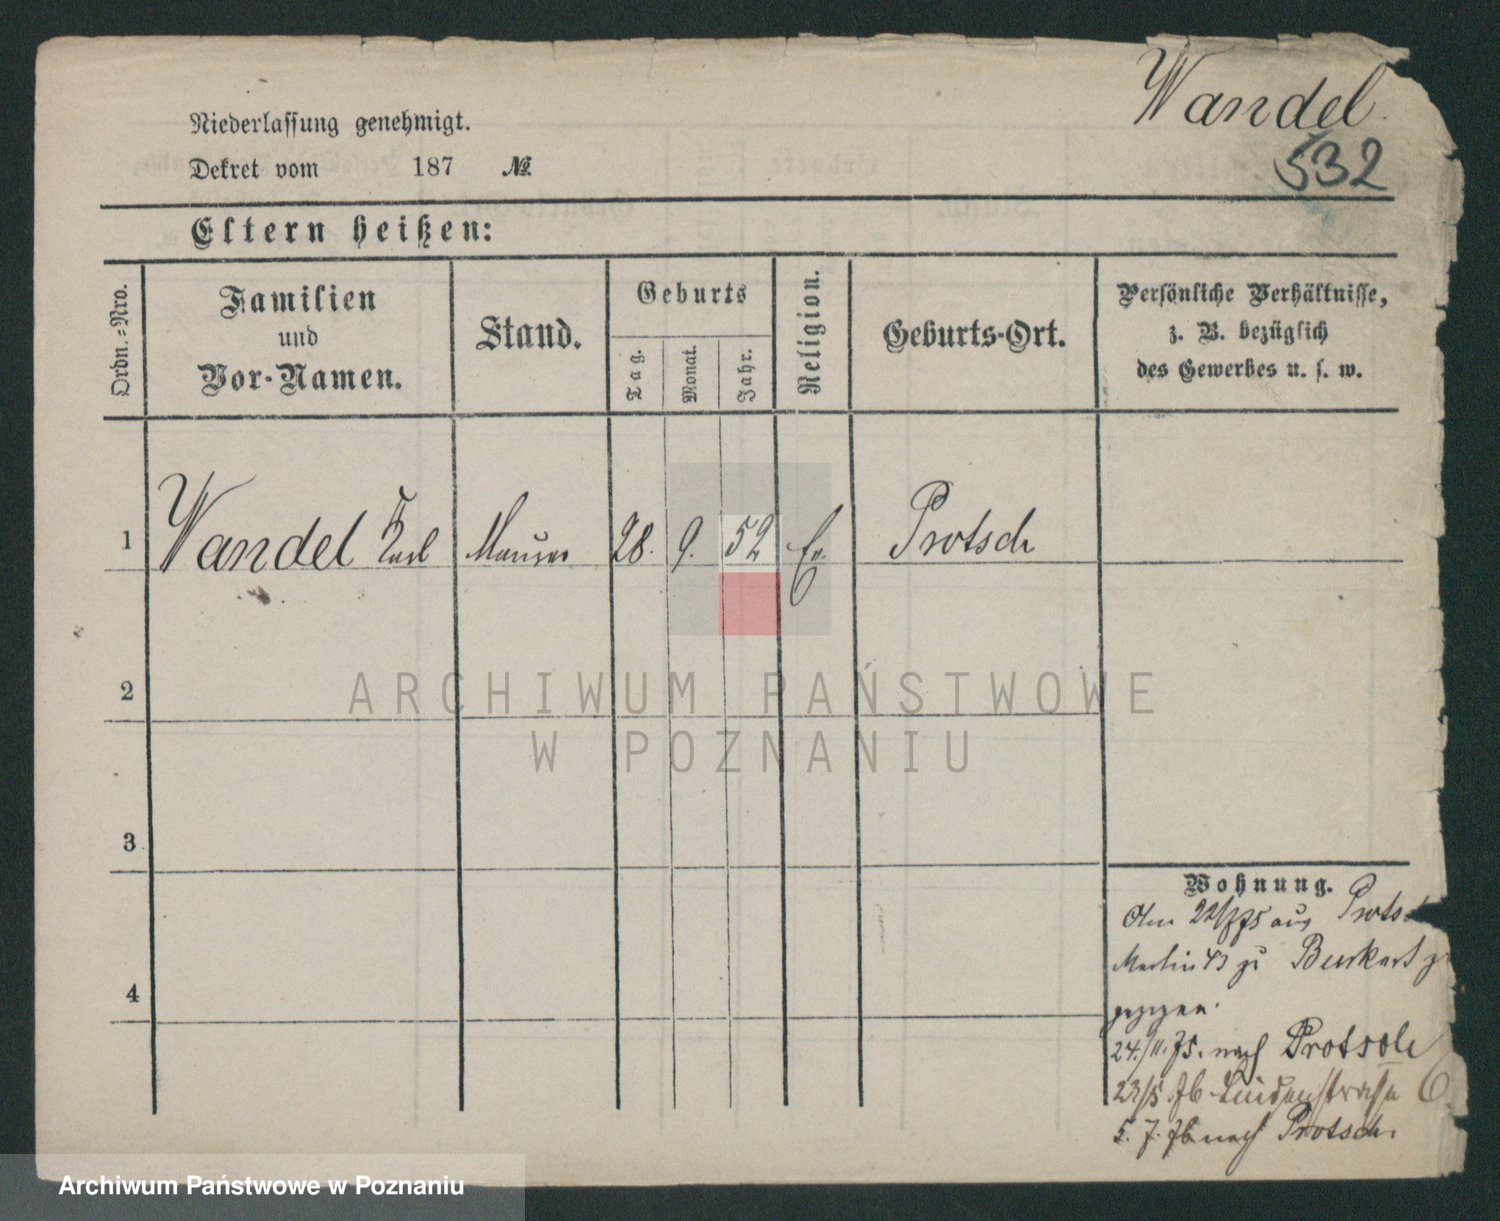 Wandel
532
Niederlassung genehmigt.
Dekret vom 187 №
Eltern heißen:
Ordn.=Nro.
Familien
und
Vor-Namen.
Stand.
Geburts
Tag.
Monat.
Jahr.
Religion.
Geburts-Ort.
Persönliche Verhältnisse,
z. B. bezüglich
des Gewerbes u. s. w.
1 Wandel Karl Maurer 28. 9. 52 Ev. Protsch
2
3
4
Wohnung.
Am 22/ 75 aus Protsch
Martin 43 zu Burkert
gezogen.
24./11. 75. nach Protsch
23/5 76 Lindenstraße 6
5. 7. 76 nach Protsch.
ARCHIWUM PAŃSTWOWE
W POZNANIU
Archiwum Państwowe w Poznaniu